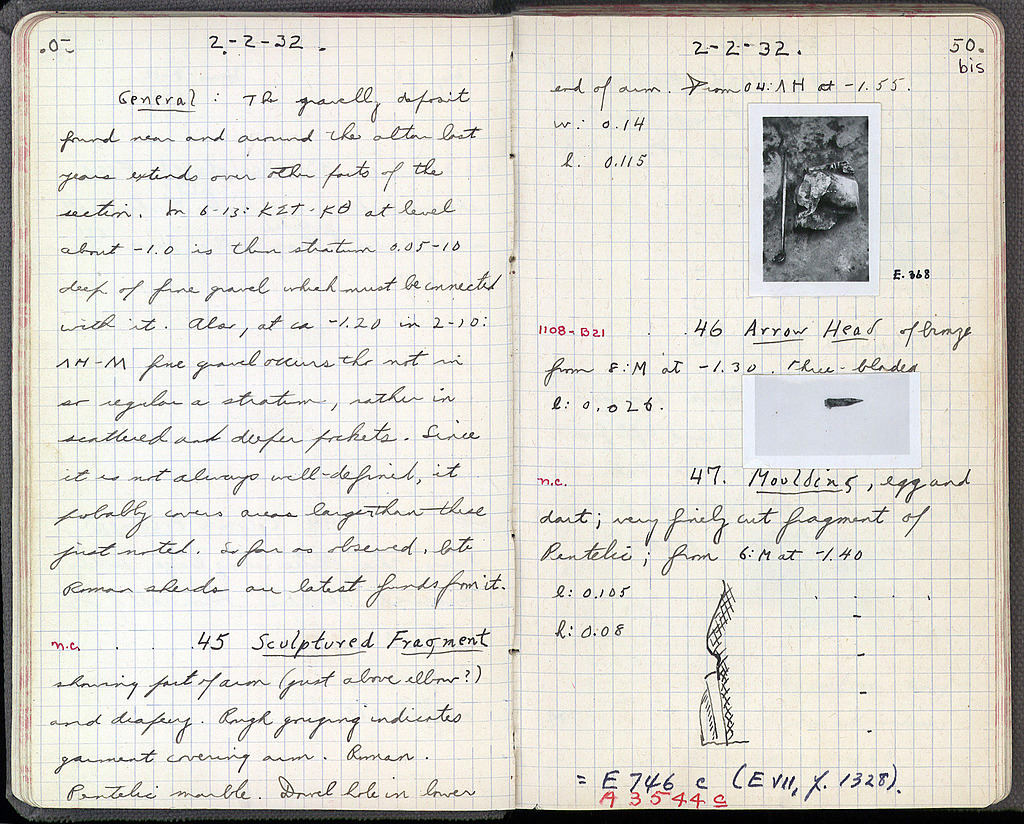 .0-
2-2-32.
General: The gravelly deposit
found near and around the altar last
years extends over other parts of the
section. In 6-13: ΚΣΤ-ΚΘ at level
about -1.0 is thin stratum 0.05-10
deep of fine gravel which must be connected
with it. Also, at ca -1.20 in 2-10:
ΛΗ-Μ fine gravel occurs tho not in
so regular a stratum, rather in
scattered and deeper pockets. Since
it is not always well-defined, it
probably covers areas larger than these
just noted. So far as observed, late
Roman sherds are latest finds from it.
n.c. . . .45 Sculptured Fragment
showing part of arm (just above elbow?)
and drapery. Rough gouging indicates
garment covering arm. Roman.
Pentelic marble. Dowel hole in lower
2-2-32.
50.
bis
end of arm. From 04:ΛΗ at -1.55.
w.: 0.14
h. 0.115
E.368
1108-B21 . .46 Arrow Head of bronze
from 8:Μ at -1.30. Three-bladed
l: 0.026.
n.c. 47. Moulding, egg and
dart; very finely cut fragment of
Pentelic; from 6:Μ at -1.40
l: 0.105
h: 0.08
= E 746 c (E VII, p. 1328).
A 3544 c